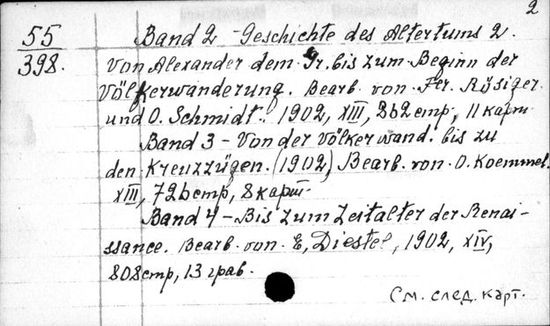 2
55
398.
Band 2 - Geschichte des Altertums 2.
von Alexander dem Gr. bis zum Beginn der
Völkerwanderung. Bearb. von Fer. Rösiger
und O. Schmidt. 1902, XIII, 262 стр, 11 карт
Band 3 - Von der Völkerwand. bis zu
den Kreuzzügen. (1902) Bearb. von O. Kaemmel.
XIII, 726 стр, 8 карт
Band 4 - Bis zum Zeitalter der Renai-
ssance. Bearb. von E. Diestel, 1902, XIV,
808 стр, 13 грав.
См. след. карт.